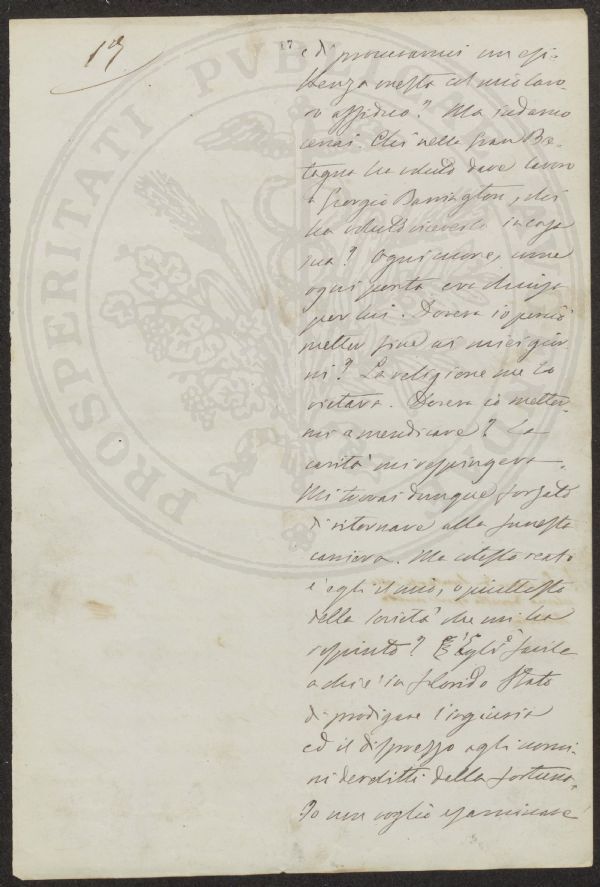 19
17
e di procurarmi un esi-
stenza onesta col mio lavo-
ro assiduo? Ma indarno
cercai. Chi nella Gran Bre-
tagna ha voluto dare lavoro
a Giorgio Barrington, chi
ha voluto riceverlo in casa
sua? Ogni cuore, come
ogni porta era chiusa
per lui. Doveva io perciò
metter fine ai miei gior-
ni? La religione me lo
vietava. Doveva io metter-
mi a mendicare? La
carità mi respingeva.
Mi trovai dunque forzato
di ritornare alla funesta
carriera. Ma cotesto reato
è egli il mio, o piuttosto
della società che mi ha
respinto? È egli facile
a chi è in florido stato
di prodigare l'ingiuria
ed il disprezzo agli uomi-
ni derelitti dalla fortuna.
Io non voglio esaminare
PROSPERITATI PUBL